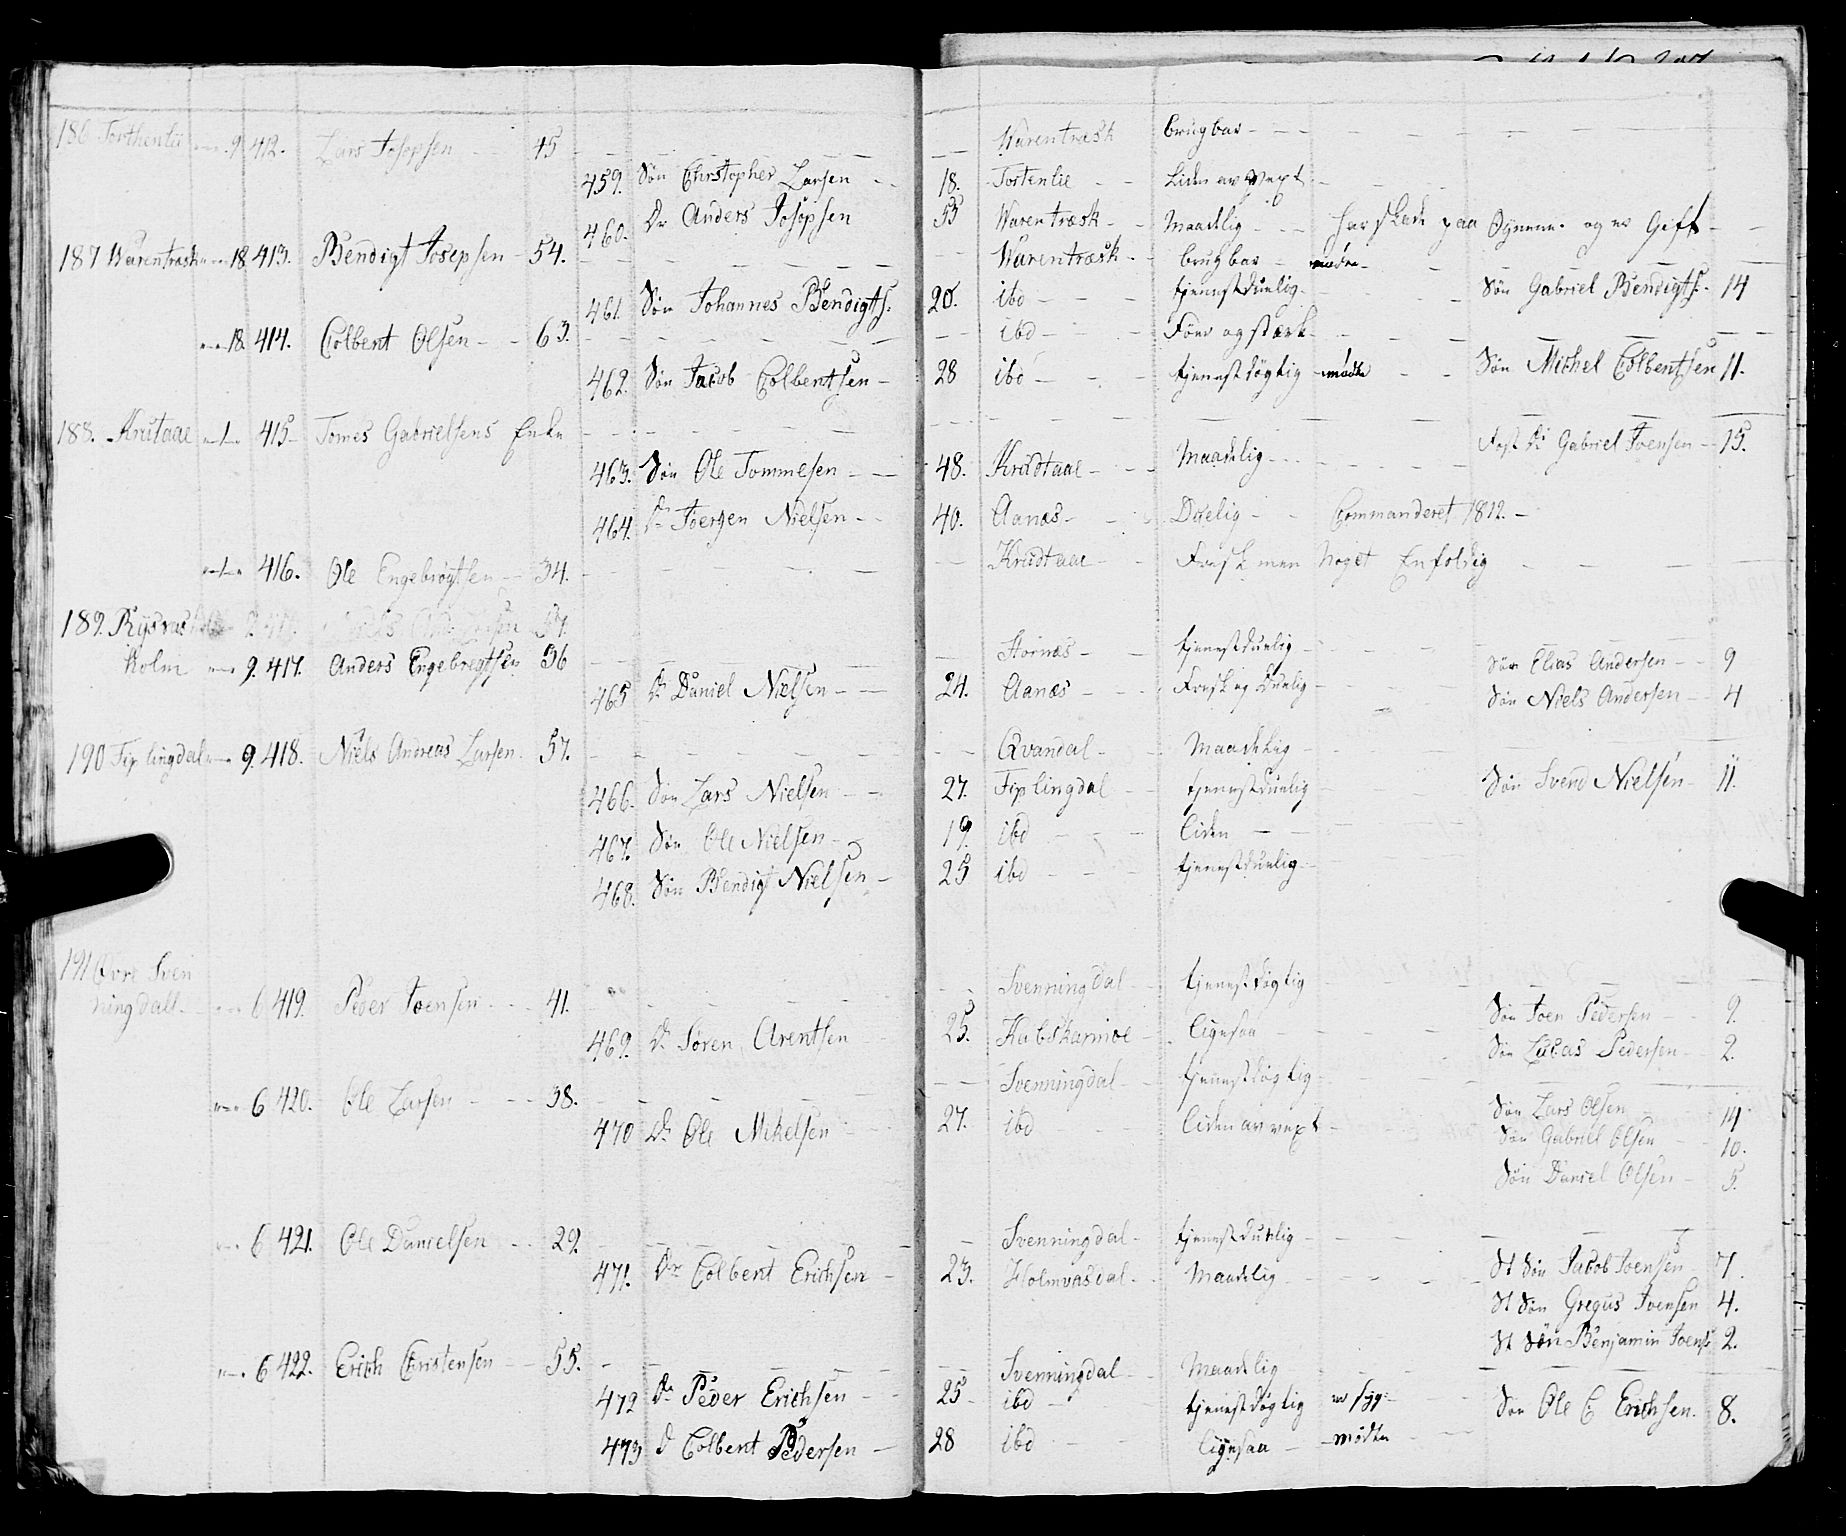 186 Torthenlii — 9 412. Lars Josepsen — 45 — Warentræsk brugbar
459. Søn Christopher Larsen — 18. Tostenlie — Liden av Vext
460. Dr Anders Josepsen 53 Warentræsk — Maadelig — har skade paa Øynene og er Gift
187 Warentrask — 18 413. Bendigt Josepsen — 54. — Warentræsk — brugbar — mødte
461. Søn Johannes Bendigts. 20. ibd — tjenestduelig — Søn Gabriel Bendigts. 14
— 18. 414. Colbent Olsen — 63. — ibd — Før og stærk
462. Søn Jacob Colbentsen — 28 ibd — tjenestdøgtig — mødte — Søn Michel Colbentsen 11.
188. Krutaae — 1 — 415 — Tomes Gabrielsens Enke — Gabriel Joensen — 15.
463. Søn Ole Tommesen — 48. Krudtaae — Maadelig
464. Dr Joergen Nielsen — 40. Aanæs — Duelig — Commanderet 1812.
— 1 — 416. Ole Engebrøgtsen — 34. — Krudtaae — Frisk men Noget Enfoldig
189. Rysvas 57.
holm — 9. 417. Anders Engebregtsen 36 — Hornæs — tjenestduelig — Søn Elias Andersen — 9
465 Dr Daniel Nielsen — 24. Aanæs — Frisk og Duelig — Søn Niels Andersen — 4
190 Fiplingdal — 9. 418. Niels Andreas Larsen. 57. — Qvandal — Maadelig
466. Søn Lars Nielsen — 27. Fiplingdal — tjenestduelig — Søn Svend Nielsen — 11.
467. Søn Ole Nielsen — 19. ibd — liden
468. Søn Bendigt Nielsen — 25 ibd — tjenestduelig
191 Øvre Sven
ningdall — 6 419. Peder Joensen — 41. — Svenningdal — tjenestdøgtig — Søn Joen Pedersen — 9.
469. Dr Søren Arentsen — 25. — ligesaa — Søn Lucas Pedersen — 2.
— 6 420. Ole Larsen — 38. — Svenningdal — tjenestdøgtig
470 Dr Ole Mikelsen — 27. ibd — liden av vext — Søn Lars Olsen 14
Søn Gabriel Olsen — 10.
Søn Daniel Olsen — 5.
— 6 421. Ole Danielsen — 29. — Svenningdal — tjenestduelig
471. Dr Colbent Erichsen — 23. Holmvasdal — Maadelig — St Søn Jacob Joensen 7.
St Søn Gregus Joensen 4.
St Søn Benjamin Joens 2.
— 6 422. Erich Christensen — 55. — Svenningdal — Maadelig
472 Dr Peder Erichsen — 25 — ibd — tjenestdøgtig er syg — Søn Ole C Erichsen. 8.
473 D Colbent Pedersen — 28 ibd — ligesaa — mødte